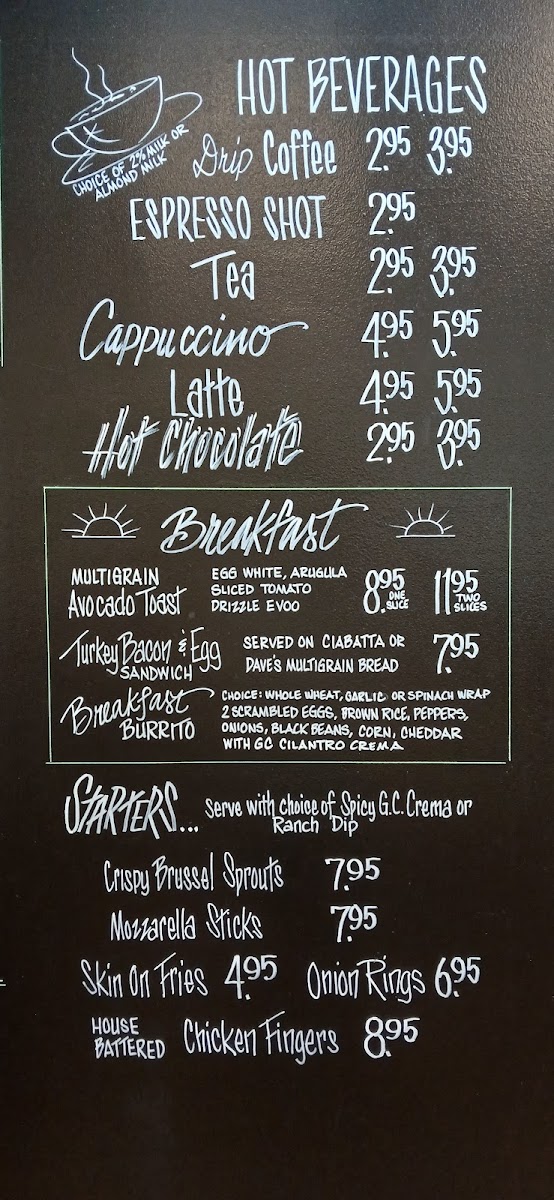 HOT BEVERAGES
CHOICE OF 2% MILK OR
ALMOND MILK
Drip Coffee 2.95 3.95
ESPRESSO SHOT 2.95
Tea 2.95 3.95
Cappuccino 4.95 5.95
Latte 4.95 5.95
Hot Chocolate 2.95 3.95
Breakfast
MULTIGRAIN
Avocado Toast
EGG WHITE, ARUGULA
SLICED TOMATO
DRIZZLE EVOO
8.95 ONE SLICE
11.95 TWO SLICES
Turkey Bacon & Egg
SANDWICH
SERVED ON CIABATTA OR
DAVE'S MULTIGRAIN BREAD
7.95
Breakfast
BURRITO
CHOICE: WHOLE WHEAT, GARLIC OR SPINACH WRAP
2 SCRAMBLED EGGS, BROWN RICE, PEPPERS,
ONIONS, BLACK BEANS, CORN, CHEDDAR
WITH GC CILANTRO CREMA
STARTERS... Serve with choice of Spicy G.C. Crema or
Ranch Dip
Crispy Brussel Sprouts 7.95
Mozzarella Sticks 7.95
Skin On Fries 4.95 Onion Rings 6.95
HOUSE
BATTERED Chicken Fingers 8.95